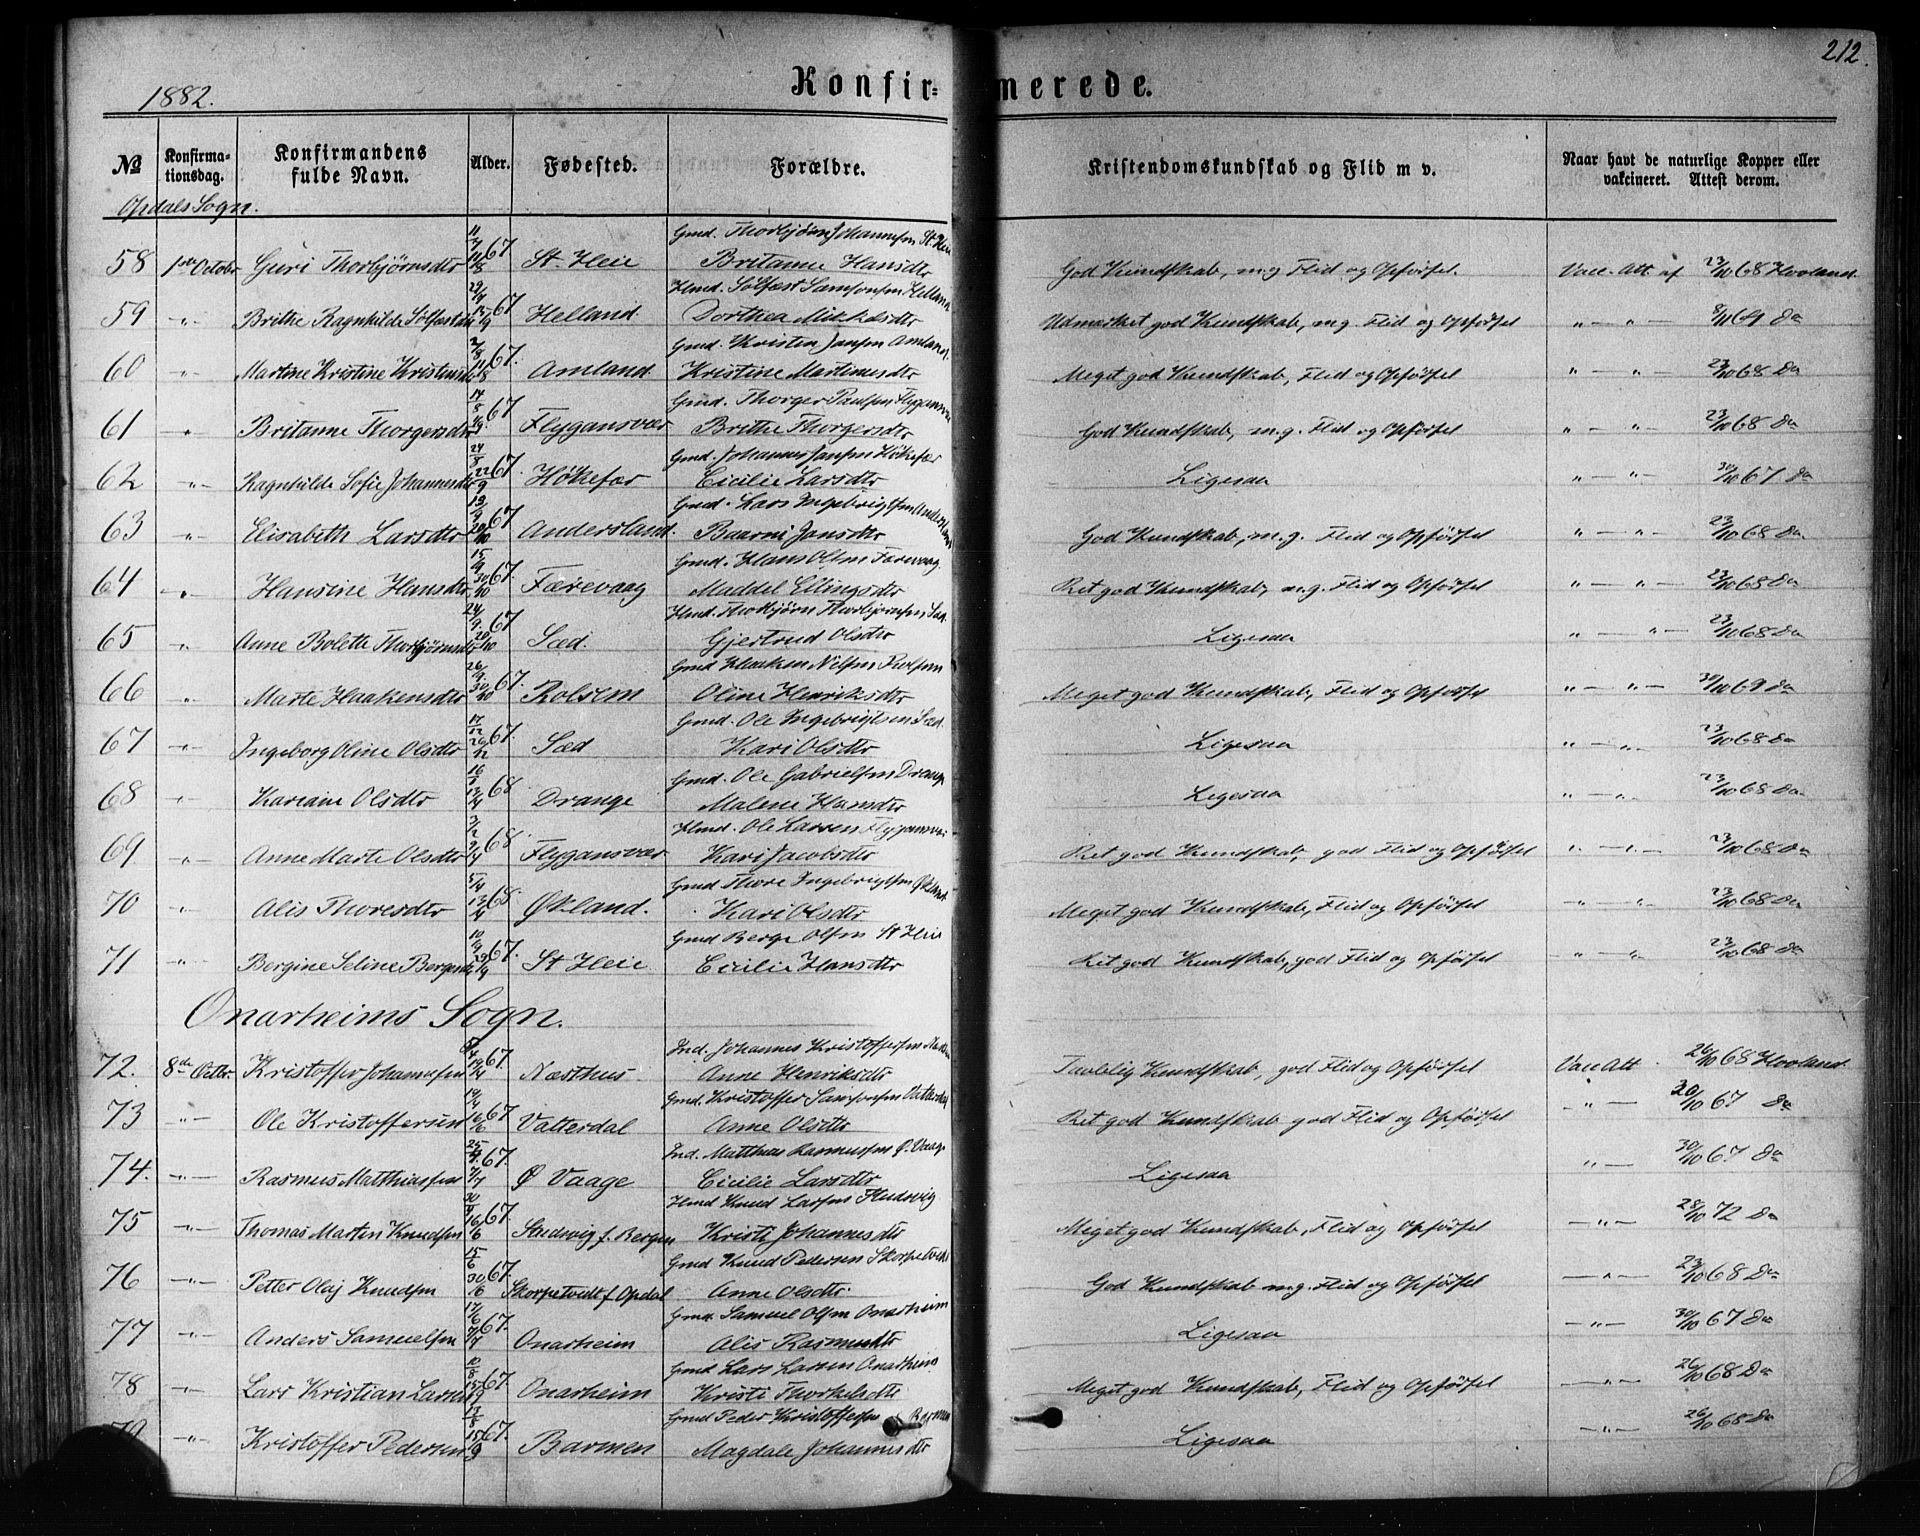 212.
1882.
Konfir=merede.
No Konfirmationsdag. Konfirmandens fulde Navn. Alder. Fødested. Forældre. Kristendomskundskab og Flid m v. Naar havt de naturlige Kopper eller vakcineret. Attest derom.
Opdals Sogn.
Gmd. Thorbjørn Johannesen St. Heie
58 1ste October Guri Thorbjørnsdtr 67 St. Heie Britanne Hansdtr God Kundskab, m.g. Flid og Opførsel. Vacc. Att. af 23/10 68 Hovland.
Hmd. Sølfæst Samsonsen Helland
59 " Brithe Ragnhilde Sølfæstdtr 67 Helland Dorthea Mikkelsdtr Udmærket god Kundskab, m.g. Flid og Opførsel " — " — 8/11 69 Do
Gmd. Kristen Jansen Amland.
60 " Martine Kristine Kristensdtr 67. Amland Kristine Martinusdtr Meget god Kundskab, Flid og Opførsel " — " — 23/10 68 Do
Gmd. Thorger Paulsen Flygansvær
61 " Britanne Thorgersdtr 67 Flygansvær Brithe Thorgersdtr God Kundskab, m.g. Flid og Opførsel " — " — 23/10 68 Do
Gmd. Johannes Jansen Høkefær
62 " Ragnhilde Sofie Johannesdtr 67. Høkefær Cicilie Larsdtr Ligesaa " — " — 30/10 67 Do
Gmd. Lars Ingebrigtsen Andersland
63 " Elisabeth Larsdtr 67 Andersland. Baarni Jansdtr God Kundskab, m.g. Flid og Opførsel " — " — 23/10 68 Do
Gmd. Hans Olsen Færevaag.
64 " Hansine Hansdtr 67. Færevaag Maddel Ellingsdtr Ret god Kundskab, m.g. Flid og Opførsel " — " — 23/10 68 Do
Hmd. Thorbjørn Thorbjørnsen, Sæd.
65 " Anne Bolette Thorbjørnsdtr 67 Sæd. Gjertrud Olsdtr Ligesaa " — " — 23/10 68 Do
Gmd Haaken Nilsen Rolsem
66 " Marte Haakensdtr 67. Rolsem Oline Henriksdtr Meget god Kundskab, Flid og Opførsel " — " — 30/10 69 Do
Gmd. Ole Ingebrigtsen Sæd.
67 " Ingeborg Oline Olsdtr 67. Sæd Kari Olsdtr Ligesaa " — " 23/10 68 Do
Gmd. Ole Gabrielsen Drange
68 " Kariane Olsdtr 68 Drange Malene Hansdtr Ligesaa " — " 23/10 68 Do
Hmd. Ole Larsen Flygansvær
69 " Anne Marte Olsdtr 68 Flygansvær Kari Jacobsdtr Ret god Kundskab, god Flid og Opførsel " — " — 23/10 68 Do
Gmd Thore Ingebrigtsen Økland
70 " Alis Thoresdtr 68. Økland. Kari Olsdtr Meget god Kundskab, Flid og Opførsel " — " 23/10 68 Do
Gmd Berge Olsen St Heie
71 " Bergine Seline Bergesdtr 67. St Heie Cicilie Hansdtr Ret god Kundskab, god Flid og Opførsel " — " 23/10 68 Do
Onarheims Sogn.
Ind. Johannes Kristoffersen
72. 8de Octbr. Kristoffer Johannesen 67. Næsthus Anne Henriksdtr Taalelig Kundskab, god Flid og Opførsel Vacc Att. 26/10 68 Hovland
Gmd. Kristoffer Samsonsen Vatterdal
73 " Ole Kristoffersen 67 Vatterdal Anne Olsdtr Ret god Kundskab god Flid og Opførsel " — " — 30/10 67 Do
Ind. Matthias Rasmussen Ø. Vaage
74. " Rasmus Matthiassen 67. Ø Vaage Cicilie Larsdtr Ligesaa " — 30/10 67 Do
Hmd Knud Larsen Sludsvig
75 " Thomas Martin Knudsen 67. Sludsvig f. Bergen Kristi Johannesdtr Meget god Kundskab, Flid og Opførsel — " — 28/10 72 Do
Gmd Knud Pedersen Skorpetvedt
76 " Petter Olaj Knudsen 67. Skorpetvedt f Opdal Anne Olsdtr. God Kundskab m.g. Flid og Opførsel — " — 23/10 68 Do
Gmd. Samuel Olsen Onarheim
77 " Anders Samuelsen 67. Onarheim Alis Rasmusdtr Ligesaa — " — 30/10 67 Do
Gmd Lars Larsen Onarheim
78 " Lars Kristian Larsen 67. Onarheim Kristi Thorkelsdtr Meget god Kundskab, Flid og Opførsel — " — 26/10 68 Do
Gmd Peder Kristoffersen Barmen
79 " Kristoffer Pedersen 67. Barmen Magdale Johannesdtr Ligesaa — " — 26/10 68 Do